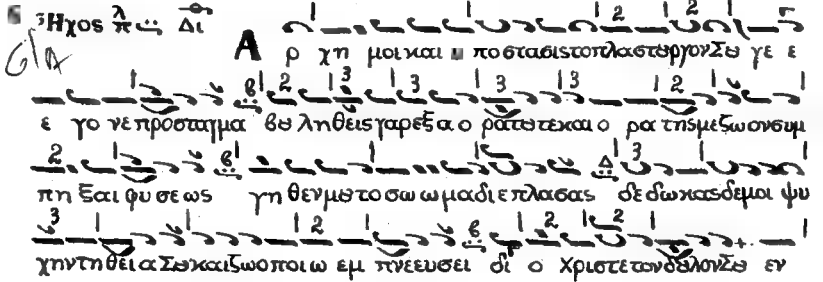 Ἦχος λ π Δι
Α ρ χη μοι και υ ποστασις το πλαστουργον Σου γε ε
ε γο νε προσταγμα βου ληθεις γαρ εξ α ο ρατου τε και ο ρα της με ζωον συμ
πη ξαι φυ σεως γη θεν μου το σω ω μα δι ε πλασας δε δωκας δε μοι ψυ
χην τη θει α Σου και ζωοποιω εμ πνε ευσει δι ο Χριστε τον δουλον Σου εν